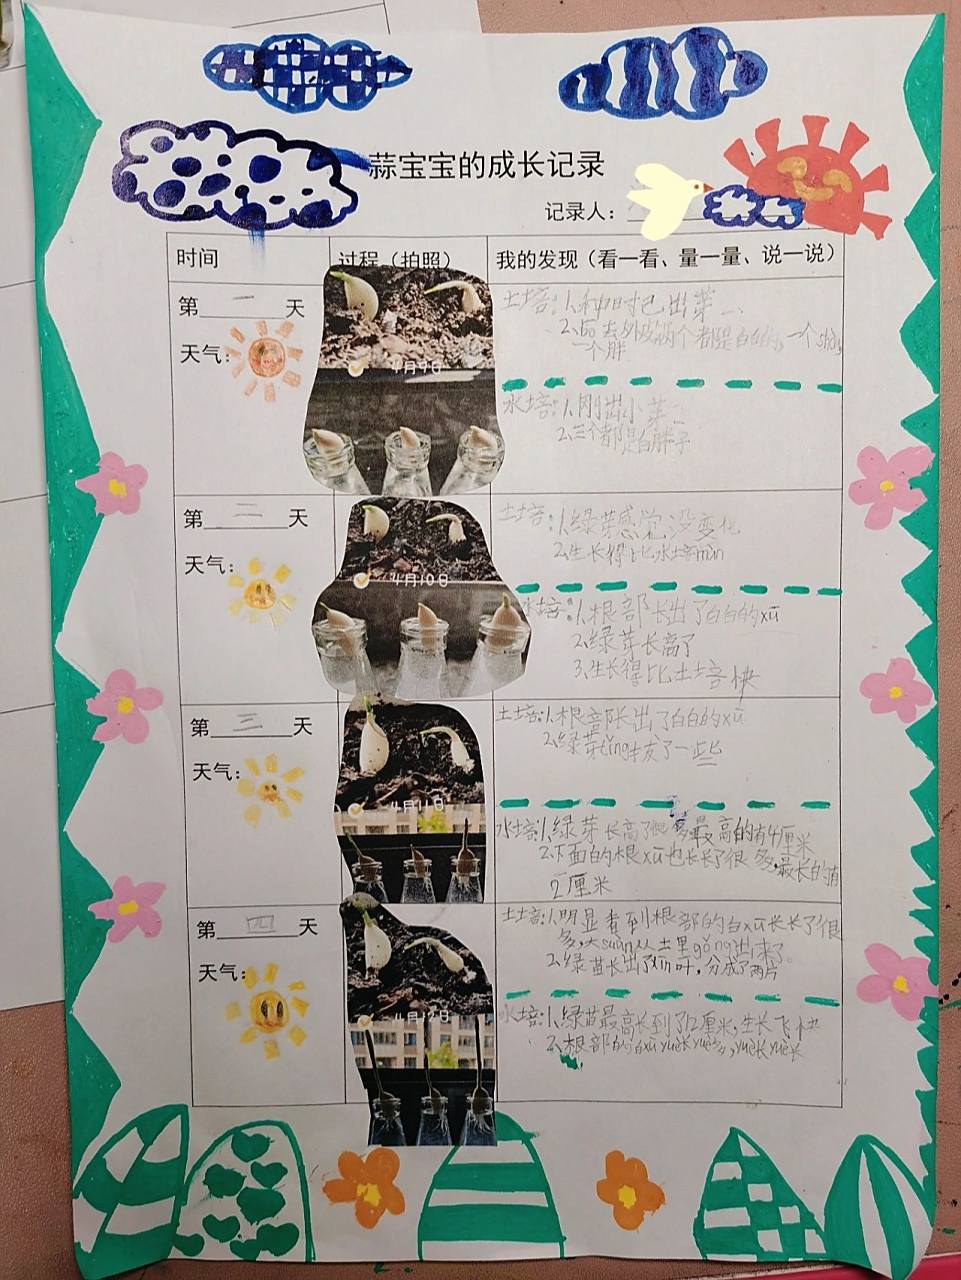 蒜宝宝的成长记录
记录人：
时间
过程（拍照）
我的发现（看一看、量一量、说一说）
第一天
天气：
4月9日
土培：1.种时已出芽
2.去外皮两个都是白白的，一个
一个胖
水培：1.刚出小芽
2.三个都是白胖子
第二天
天气：
4月10日
土培：1.绿芽感觉没变化
2.生长得比水培màn
水培：1.根部长出了白白的xū
2.绿芽长高了
3.生长得比土培快
第三天
天气：
4月11日
土培：1.根部长出了白白的xū
2.绿芽tǐng拔了一些
水培：1.绿芽长高了很多，最高的有4厘米
2.下面的根xū也长长了很多，最长的有
2厘米
第四天
天气：
4月12日
土培：1.明显看到根部的白xū长长了很
多，大suàn从土里gǒng出来了。
2.绿苗长出了xīn叶，分成了两片
水培：1.绿苗最高长到了12厘米，生长飞快
2.根部的白xū yuè长yuè多，yuè长yuè长